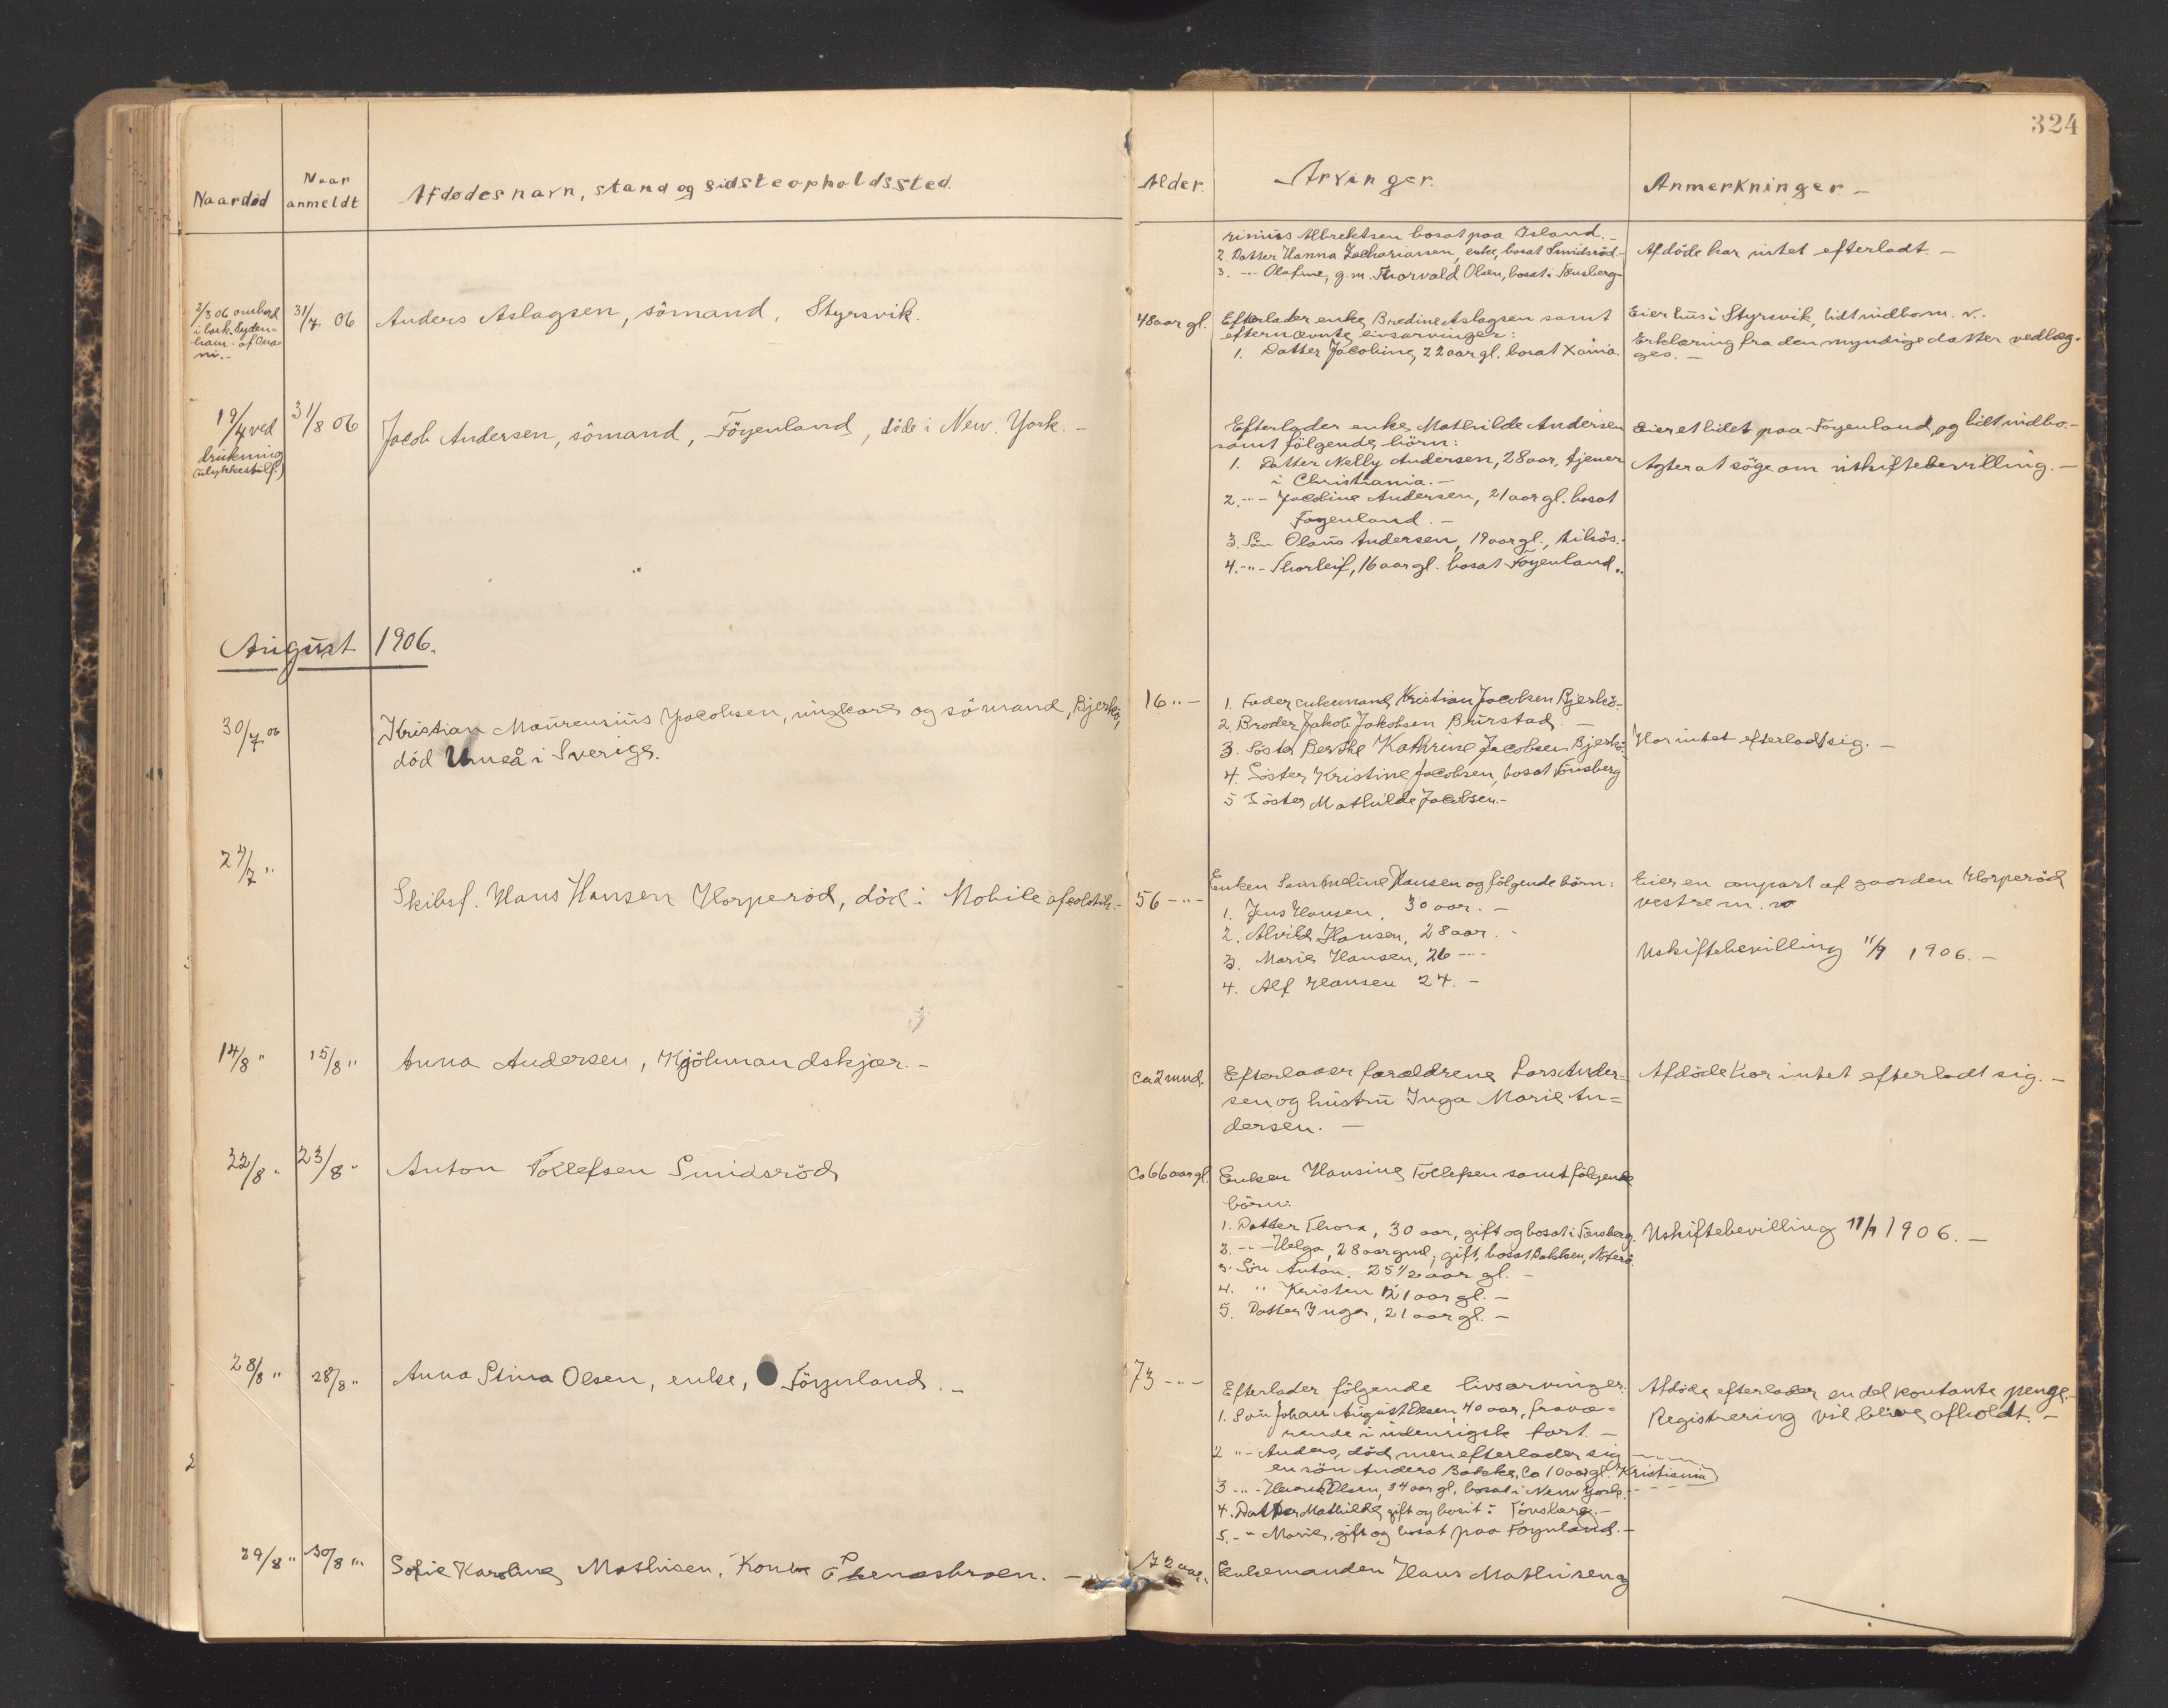 324
Naar død
Naar anmeldt
Afdødes navn, stand og sidste opholdssted.
Alder.
Arvinger.
Anmerkninger. -
rinius Albrektsen bosat paa Island. -
2. Datter Hanna Zachariassen, enke, bosat Smidsröd. -
3. -"- Olafine, g. m. Thorvald Olsen, bosat i Tönsberg -
Afdöde har intet efterladt. -
2/3 06 ombord
i bark. Syden-
ham
31/7 06
Anders Aslagsen, sömand, Styrsvik.
48 aar gl.
Efterlader enke, Bredine Aslagsen samt
efternævnte livsarvinger:
1. Datter Jacobine, 22 aar gl. bosat Xania.
Eier hus i Styrsvik, lidt indbo m. v.
Erklæring fra den myndige datter vedlæg-
ges. -
19/4 ved
drukning
(ulykkestilf.)
31/8 06
Jacob Andersen, sömand, Föyenland, döde i New. York. -
Efterlader enke Mathilde Andersen
samt fölgende börn:
1. Datter Nelly Andersen, 28 aar, tjener
i Christiania. -
2. -"- Jacobine Andersen, 21 aar gl. bosat
Föyenland. -
3. Sön Olaus Andersen, 19 aar gl., tilsös.
4. -"- Thorleif, 16 aar gl. bosat Föyenland.
Eier et lidet paa Föyenland og lidt indbo. -
Agter at söge om uskiftebevilling. -
August 1906.
30/7 06
Kristian Maurensius Jacobsen, ungkar og sömand, Bjerkö,
död Umeå i Sverige.
16 "-
1. Fader enkemand Kristian Jacobsen Bjerkö.
2. Broder Jakob Jakobsen Burstad. -
3. Söster Berthe Kathrine Jacobsen Bjerkö.
4. Söster Kristine Jacobsen, bosat Tönsberg
5 Söster Mathilde Jacobsen. -
Har intet efterladt sig. -
27/7 "
Skibsf. Hans Hansen Horperöd, död i Mobile
56 -"-
Enken Samueline Hansen og fölgende börn:
1. Jens Hansen, 30 aar. -
2. Alvild Hansen, 28 aar. -
3. Marie Hansen, 26 -"-
4. Alf Hansen 24. -
Eier en anpart af gaarden Horperöd
vestre m. v
Uskiftebevilling 11/9 1906. -
14/8 "
15/8 "
Anna Andersen, Kjöbmandskjær. -
ca 2 mnd.
Efterlader forældrene Lars Ander-
sen og hustru Inga Marie An=
dersen. -
Afdöde har intet efterladt sig. -
22/8 "
23/8 "
Anton Tollefsen Smidsröd
Ca 66 aar gl.
Enken Hansine Tollefsen samt fölgende
börn:
1. Datter Thora, 30 aar, gift og bosat i Tönsberg.
2. -"- Helga, 28 aar gml, gift, bosat Bakken, Nöterö.
3. Sön Anton. 25 1/2 aar gl. -
4. " Kristen 21 aar gl. -
5. Datter Inga, 21 aar gl. -
Uskiftebevilling 11/9 1906. -
28/8 "
28/8 "
Anna Stina Olsen, enke, Föynland. -
73 -"-
Efterlader fölgende livsarvinger:
1. Sön Johan August Olsen, 40 aar, fravæ=
rende i udenrigsk fart. -
2 "- Anders, död, men efterlader sig
en sön Anders Bakke, ca 10 aar gl. (Kristiania)
3 -"- Olsen, 34 aar gl. bosat i New York.
4. Datter Mathilde, gift og bosit i Tönsberg. -
5. -" Marie, gift og bosat paa Föynland. -
Afdöde efterlader en del kontante penge. -
Registrering vil blive afholdt. -
29/8 "
30/8 "
Sofie Karoline Mathisen, Kone
72 aar.
Enkemanden Hans Mathisen og